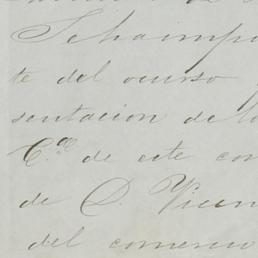 Schaimp
te del ocurso
sentacion de lo
C.ª de este com
de D. Vicen
del comercio